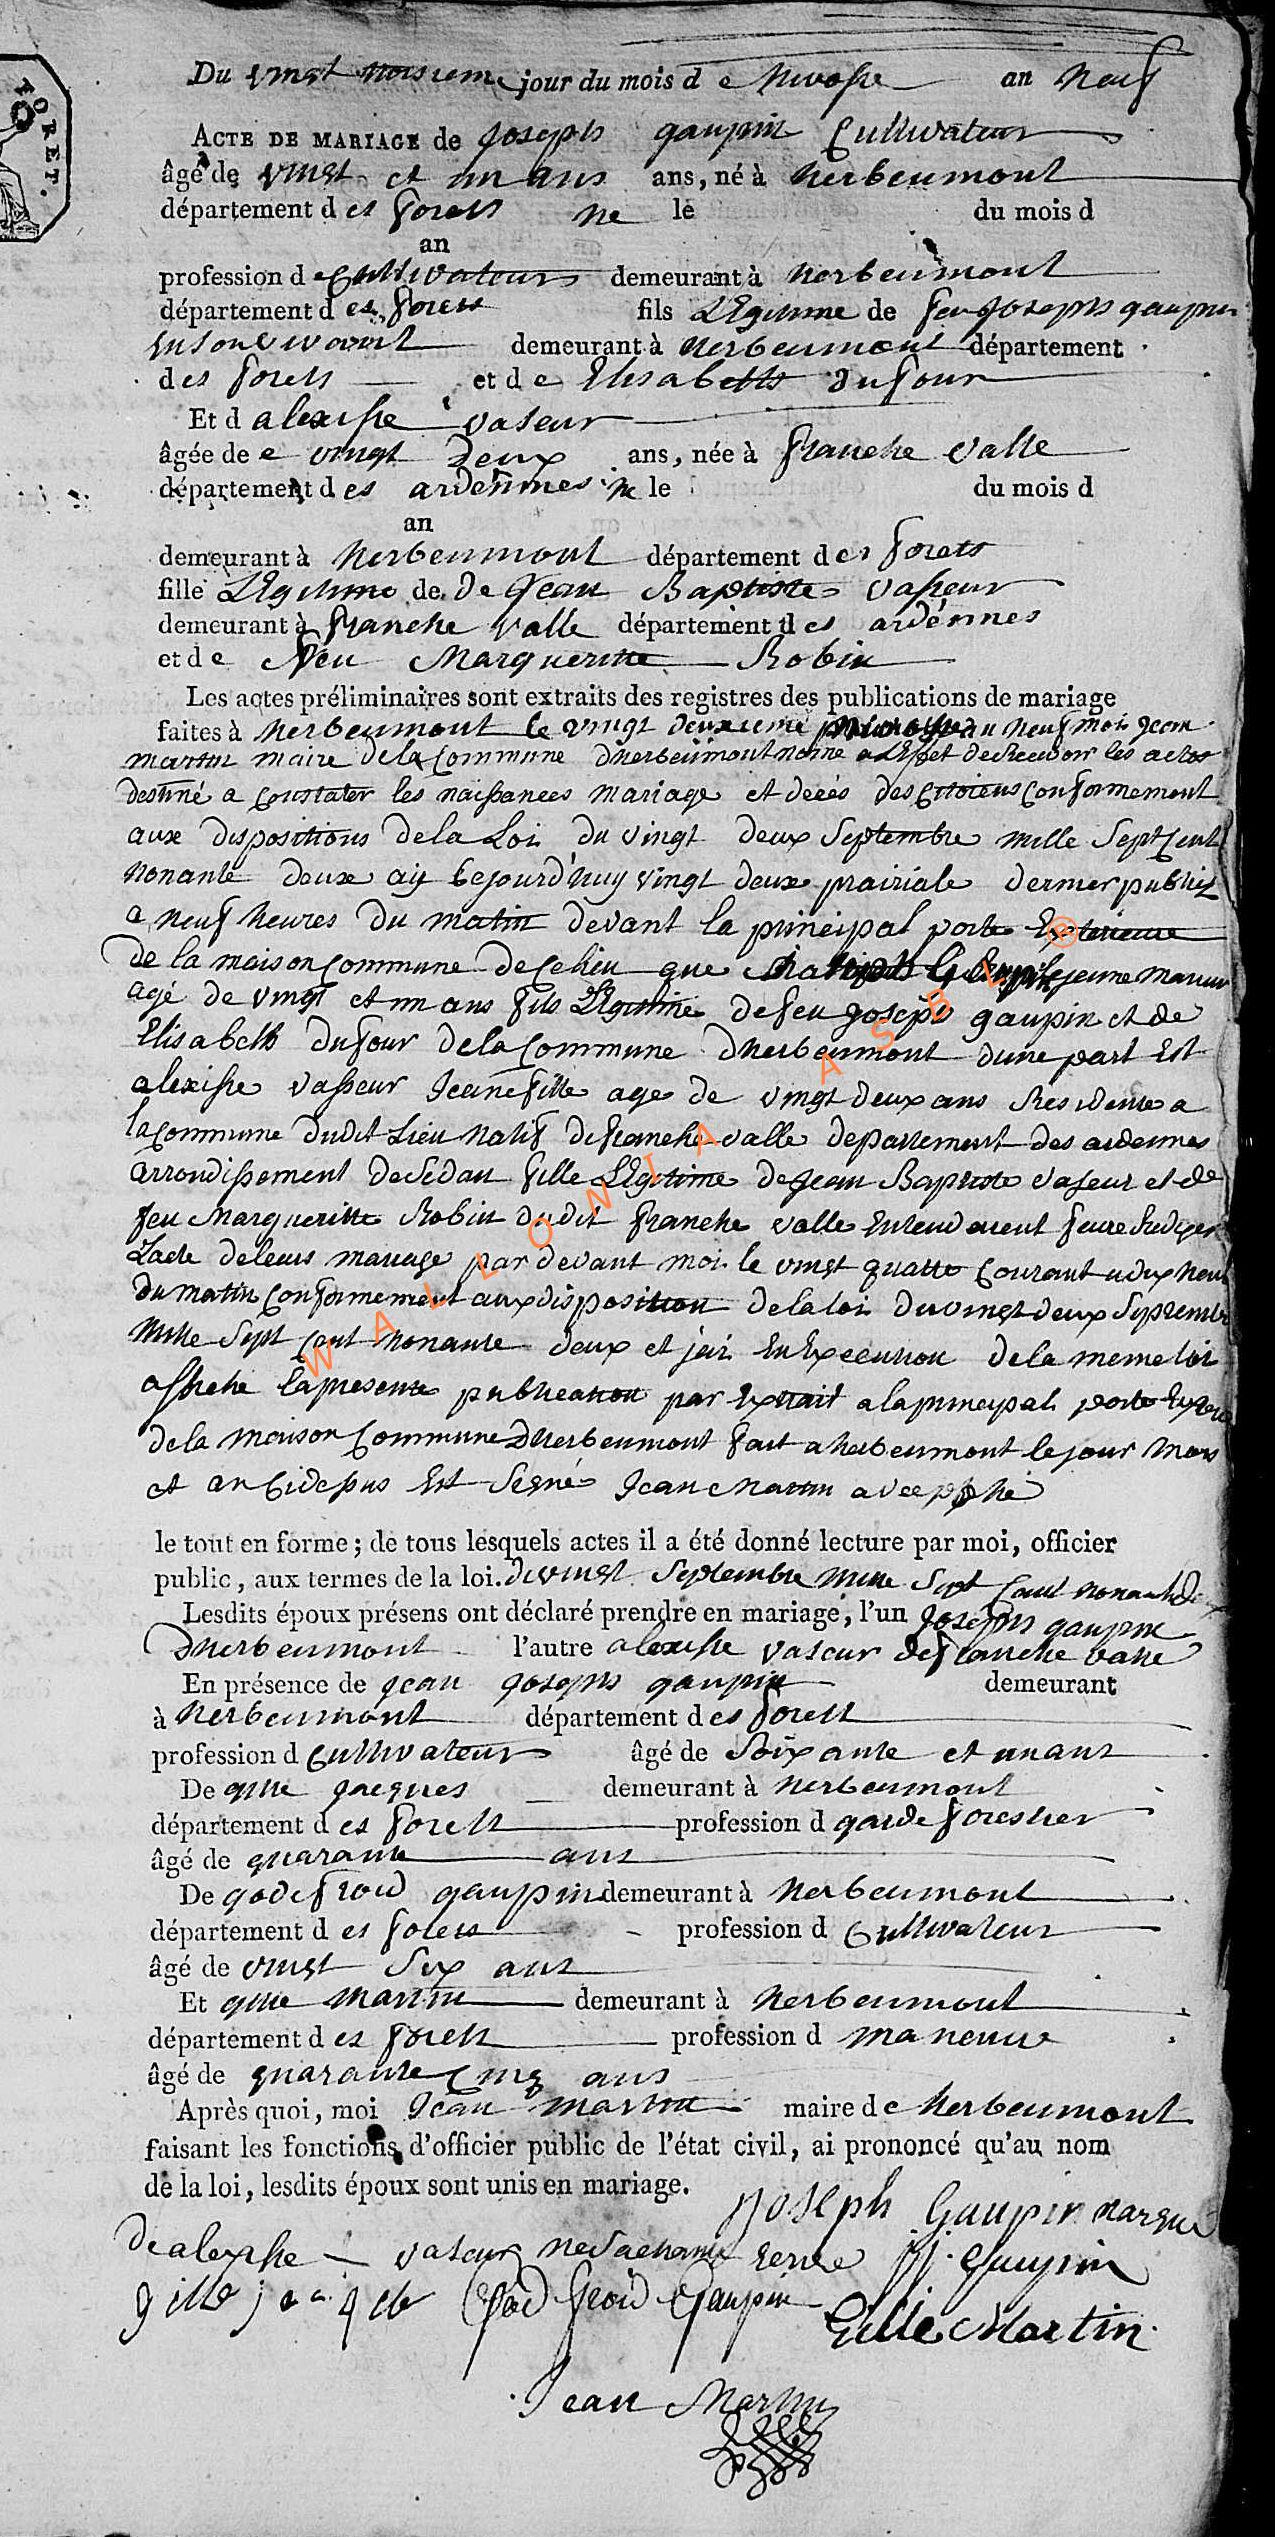 FORET.
Du vingt troisieme jour du mois de Nivosse an neuf
ACTE DE MARIAGE de Joseph gaupin Cultivateur
âgé de vingt et un ans ans, né à herbeumont
département des forets ne le du mois d
an
profession de Cultivateur demeurant à herbeumont
département des forets fils Legitime de feu Joseph gaupin
demeurant à herbeumont département
des forets et de Elisabeth dufour
Et d alexisse vaseur
âgée de e vingt deux ans, née à franche valle
département des ardennes ne le du mois d
an
demeurant à herbeumont département des forets
fille Legitime de de Jean Baptiste vasseur
demeurant à franche valle département des ardénnes
et de feu Margueritte Robin
Les actes préliminaires sont extraits des registres des publications de mariage
faites à herbeumont le vingt deuxieme an neuf moi jean
martin maire de la Commune dherbeumont a leffet de Recevoir les actes
destiné a Constater les naissances mariage et décés des Citoiens Conformement
aux dispositions dela Loi du vingt deux Septembre mille Sept Cent
nonante deux aij Cejourd'huy vingt deux prairiale dernier publiez
a neuf heures du matin devant la principal porte Exterieure
de la maison Commune de Celieu que jeune
agé de vingt et un ans fils Legitime de feu Joseph gaupin et de
Elisabeth dufour dela Commune dherbeumont dune part Est
alexisse vasseur Jeune fille age de vingt deux ans Residente a
la Commune dudit Lieu natif de franche valle departement des ardennes
arrondissement de Sedan fille Legitime de Jean Baptiste vaseur et de
feu Margueritte Robin dudit franche valle Entendairent faire Rediger
Lacte de leurs mariage par devant moi le vingt quatre Courant a dix heur
du matin Conformement aux disposition dela loi du vingt deux Septembre
mille Sept Cent nonante deux et jai En Execution dela meme loi
affiche la presente publication par Extrait a la principal porte
dela maison Commune Dherbeumont fait a herbeumont le jour mois
et an Cidessus Est Segné Jean Martin
le tout en forme ; de tous lesquels actes il a été donné lecture par moi, officier
public, aux termes de la loi. du vingt Septembre mille Sept Cent
Lesdits époux présens ont déclaré prendre en mariage, l'un Joseph gaupin
Dherbeumont l'autre alexisse vaseur de franche valle
En présence de jean joseph gaupin demeurant
à herbeumont département des forets
profession d Cultivateur âgé de Soixante et un ans
De gille jacques demeurant à herbeumont
département des forets profession d garde forestier
âgé de quarante ans
De godefroid gaupin demeurant à herbeumont
département des forets profession d Cultivateur
âgé de vingt Six ans
Et gille martin demeurant à herbeumont
département des forets profession d maneuve
âgé de quarante Cinq ans
Après quoi, moi Jean martin maire de herbeumont
faisant les fonctions d'officier public de l'état civil, ai prononcé qu'au nom
de la loi, lesdits époux sont unis en mariage.
Joseph Gaupin marque
de alexisse vaseur ne Sachant JJ. Gaupin
gille jacque God froid Gaupin Gille Martin
Jean Martin
WALLONIA ASBL ®